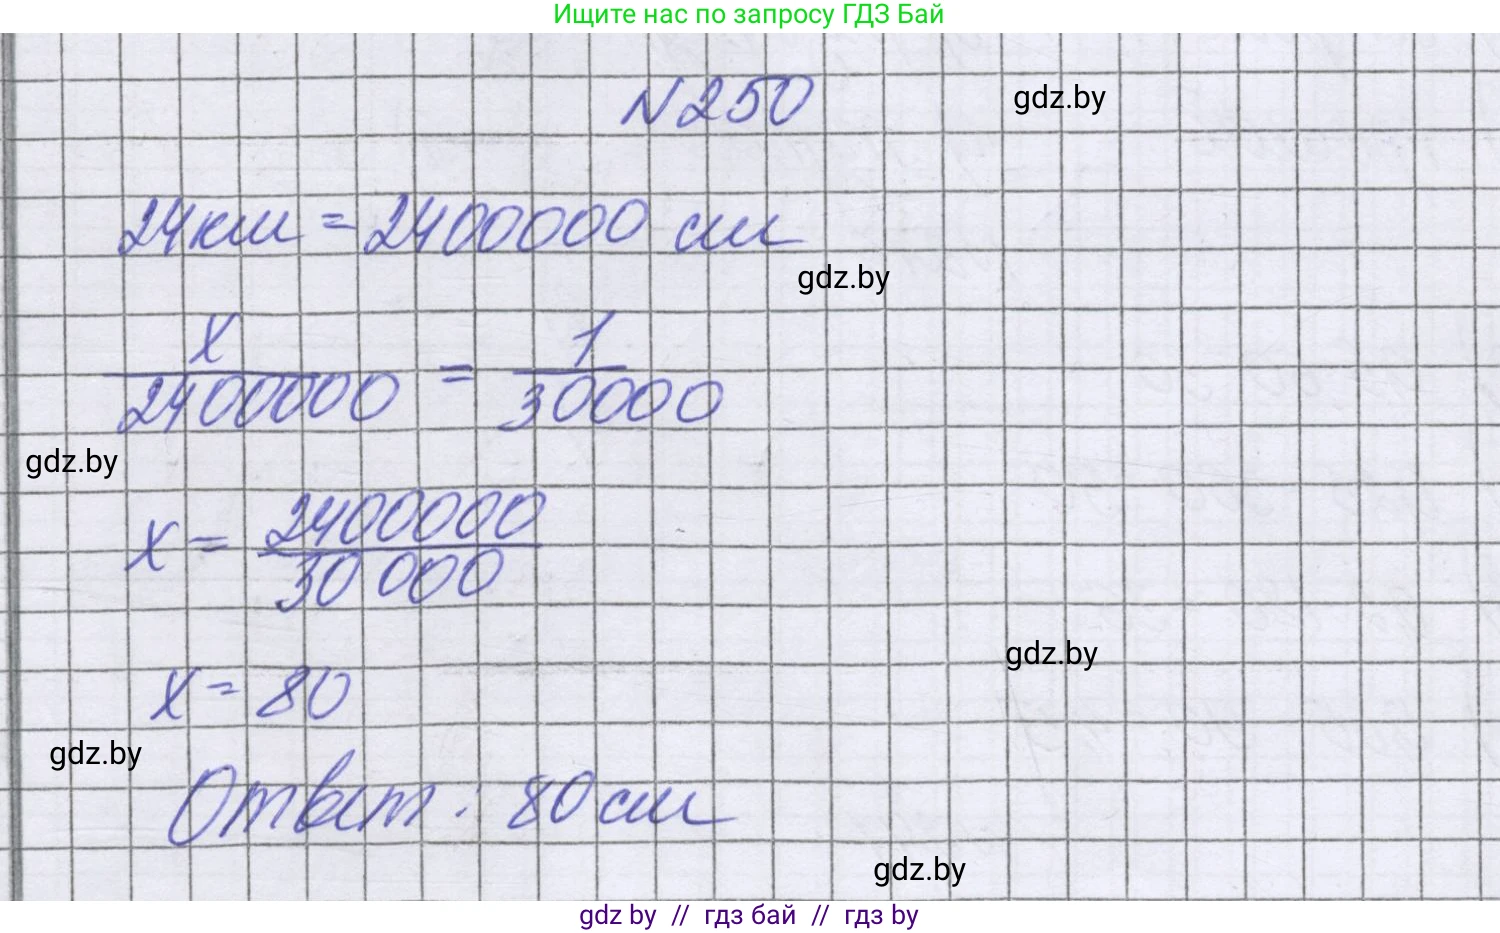 Ищите нас по запросу ГДЗ Бай
N250
gdz.by
24км = 2400000 см
gdz.by
x/2400000 = 1/30000
gdz.by
x = 2400000/30000
gdz.by
x = 80
gdz.by
Ответ: 80 см
gdz.by
gdz by // гдз бай // гдз by